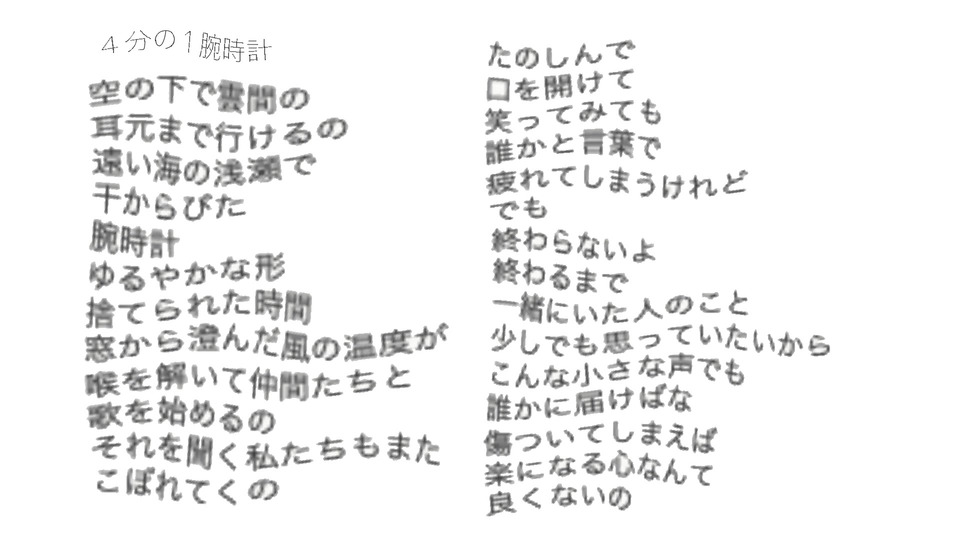 4分の1腕時計
空の下で雲間の
耳元まで行けるの
遠い海の浅瀬で
干からびた
腕時計
ゆるやかな形
捨てられた時間
窓から澄んだ風の温度が
喉を解いて仲間たちと
歌を始めるの
それを聞く私たちもまた
こぼれてくの
たのしんで
口を開けて
笑ってみても
誰かと言葉で
疲れてしまうけれど
でも
終わらないよ
終わるまで
一緒にいた人のこと
少しでも思っていたいから
こんな小さな声でも
誰かに届けばな
傷ついてしまえば
楽になる心なんて
良くないの